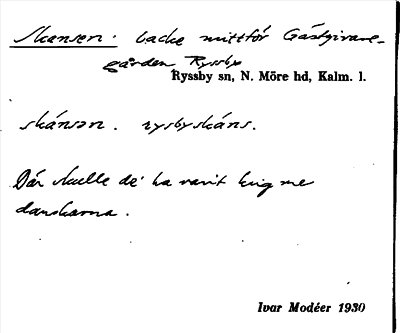 Skansen. backe mittför Gästgivare-
gården Ryssby
Ryssby sn, N. Möre hd, Kalm. l.
skánsən. rysbyskáns.
Där skulle de ha varit krig me
danskarna.
Ivar Modéer 1930